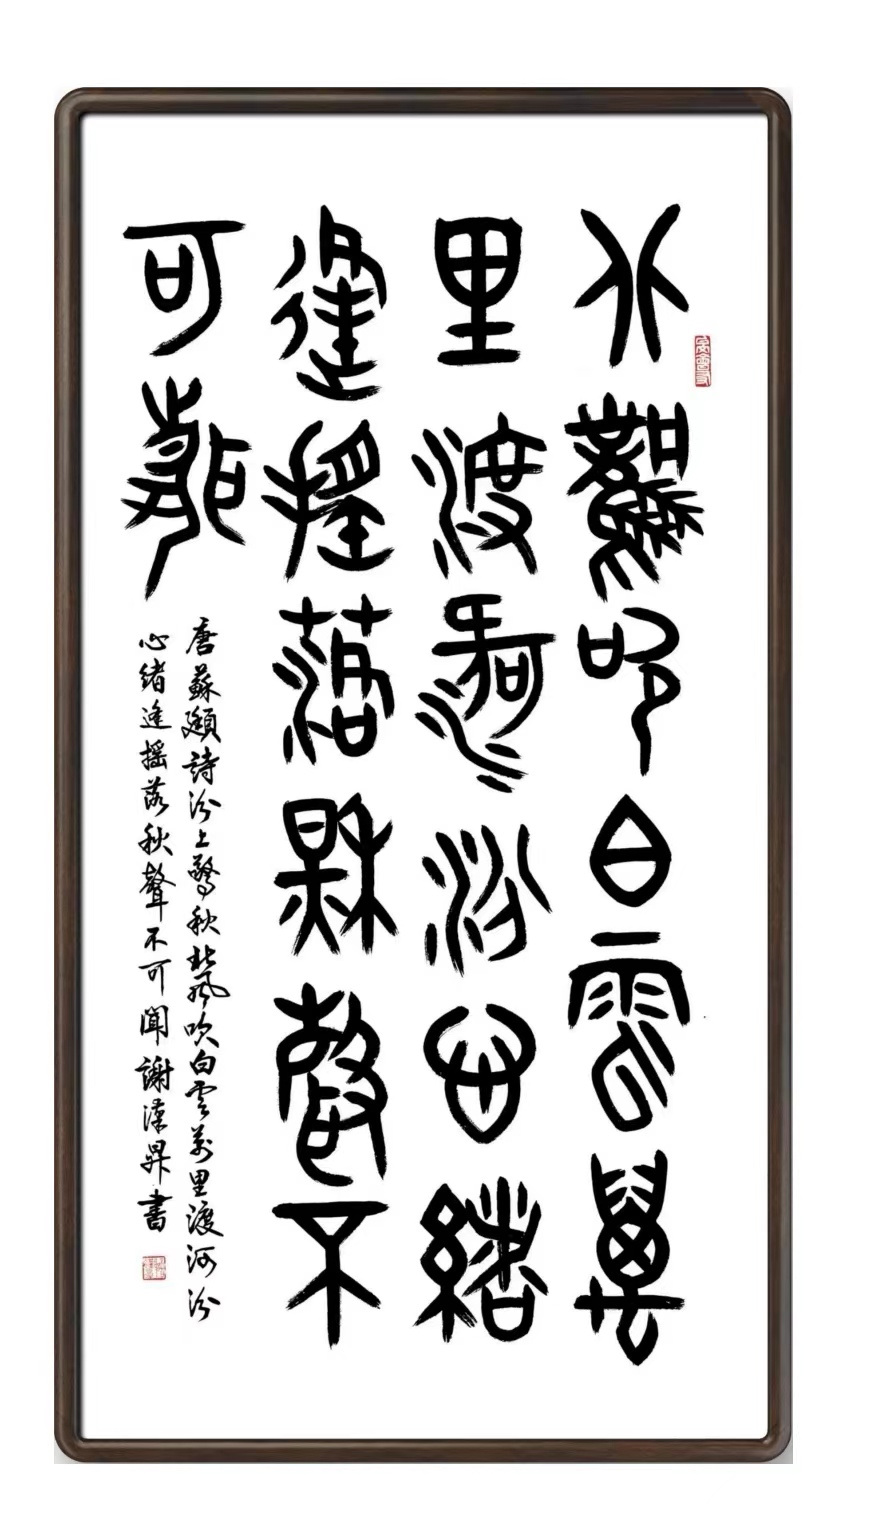 北風吹白雲萬
里渡河汾心緒
逢搖落秋聲不
可聞
唐蘇頲詩汾上驚秋北風吹白雲萬里渡河汾
心緒逢摇落秋聲不可聞謝漢昇書